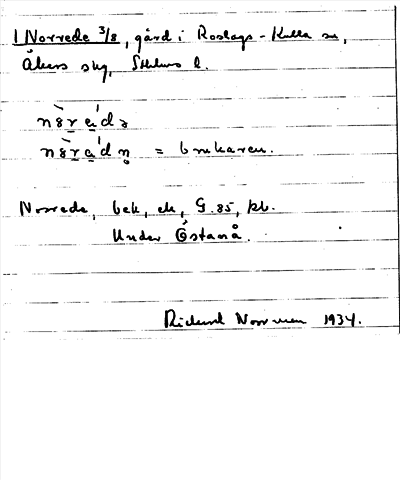 1 Norrede 3/8, gård i Roslags-Kulla sn,
Åkers skg, Sthlms l.
= brukaren.
Norrede, bek, ek, G.85, kb.
Under Östanå.
Rickard Norrmen 1934.